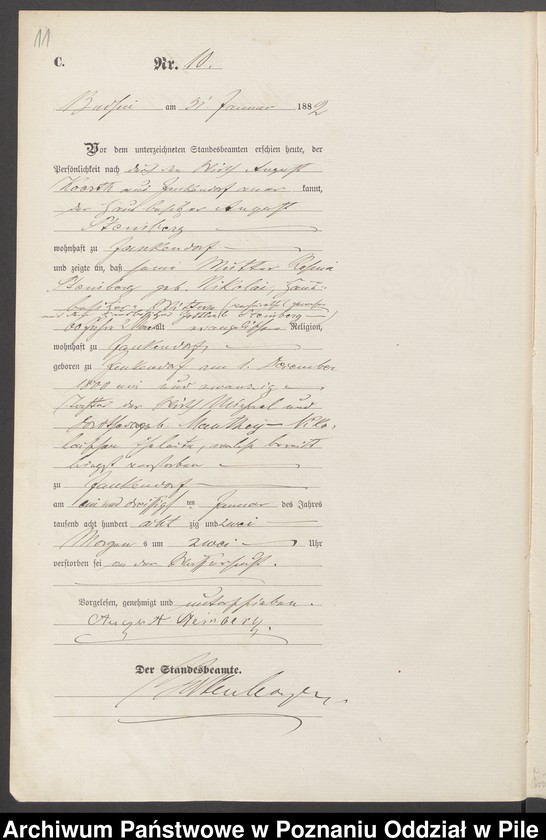 11
C. Nr. 10.
Budsin am 31 Januar 1882
Vor dem unterzeichneten Standesbeamten erschien heute, der
Persönlichkeit nach durch den Wirth August
Koorth aus Jankendorf aner kannt,
der Hausbesitzer August
Steinberg
wohnhaft zu Jankendorf
und zeigte an, daß seine Mutter Rosina
Steinberg geb. Nikolai, Haus-
besitzer Wittwe
60 Jahr 2 Monat alt evangelischer Religion,
wohnhaft zu Jankendorf,
geboren zu Jankendorf am 1. December
1800 ein und zwanzig
Tochter der Wirth Michael und
Dorothea geb. Manthey Niko-
laischen Eheleute, welche bereits
längst verstorben
zu Jankendorf
am ein und dreißigsten Januar des Jahres
tausend acht hundert acht zig und zwei
Morgen s um zwei Uhr
verstorben sei an der Wassersucht.
Vorgelesen, genehmigt und unterschrieben.
August Steinberg.
Der Standesbeamte.
Archiwum Państwowe w Poznaniu Oddział w Pile